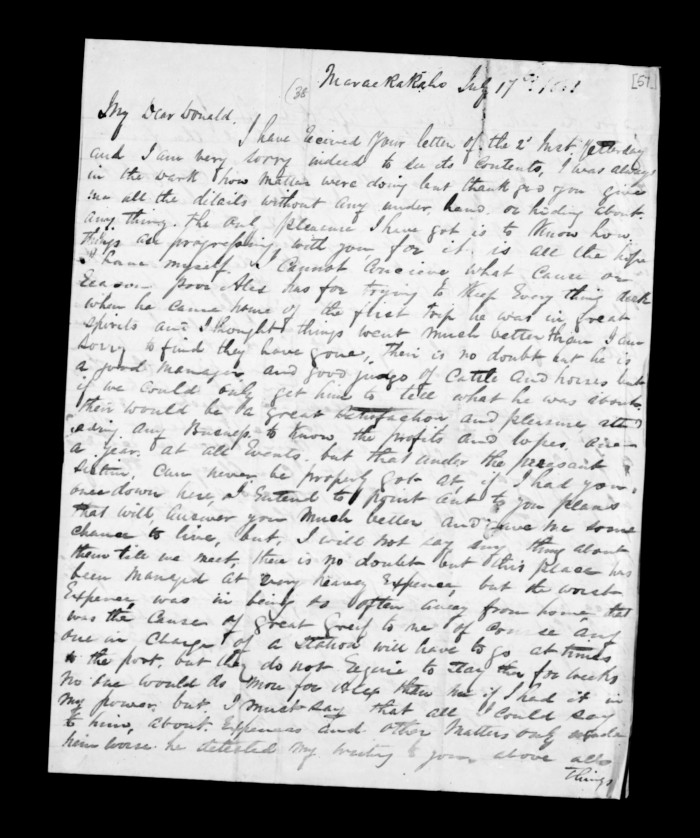 [57]
(38
Maraekakaho July 17th
My Dear Donald,
I have recived your letter of the 2d Inst yesterday
and I am very sorry indeed to see its contents, I was always
in the dark how matters were doing but thank god you give
me all the ditails without any under hand or hiding about
any thing. the only pleasure I have got is to Know how
things are progressing with you for it is all the hope
I have myself. I cannot concieve what cause or
Reason poor Alex has for trying to Keep Every thing dark
when he came home of the first trip he was in great
spirits and I thought things went much better than I am
sorry to find they have gone, their is no doubt but he is
a good manager and good judge of Cattle and horses but
if we could only get him to tell what he was about.
their would be a great satisfaction and pleasure attend
ading any Business to Know, the profits and loses once
a year. at all Events. but that under the preasant
sistim, can never be properly got at if I had you
once down here, I Entend to point out to you plans
that will, answer you much better and leave me some
chance to live, but, I will not say any thing about
them till we meet, there is no doubt but this place has
been managed at very heavey Expence, but the worst
Expence, was in being so often away from home, that
was the cause of great Greif to me of course any
one in charge of a station will have to go at times
to the port, but they do not Require to stay ther for weeks
no one would do more for Alex then me if I had it in
my power, but, I must say that all I could say
to him, about. Expences and other matters only made
him worse. he detested my writing to you above all
things